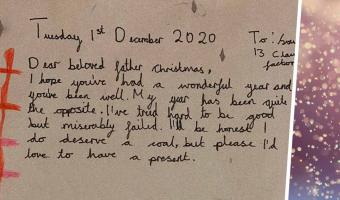 Tuesday 1st December 2020
To:
13
Dear beloved father christmas,
I hope you've had a wonderful year and
you've been well. My year has been quite
the opposite. I've tried hard to be good
but miserably failed. I'll be honest I
do deserve a coal, but please I'd
love to have a present.